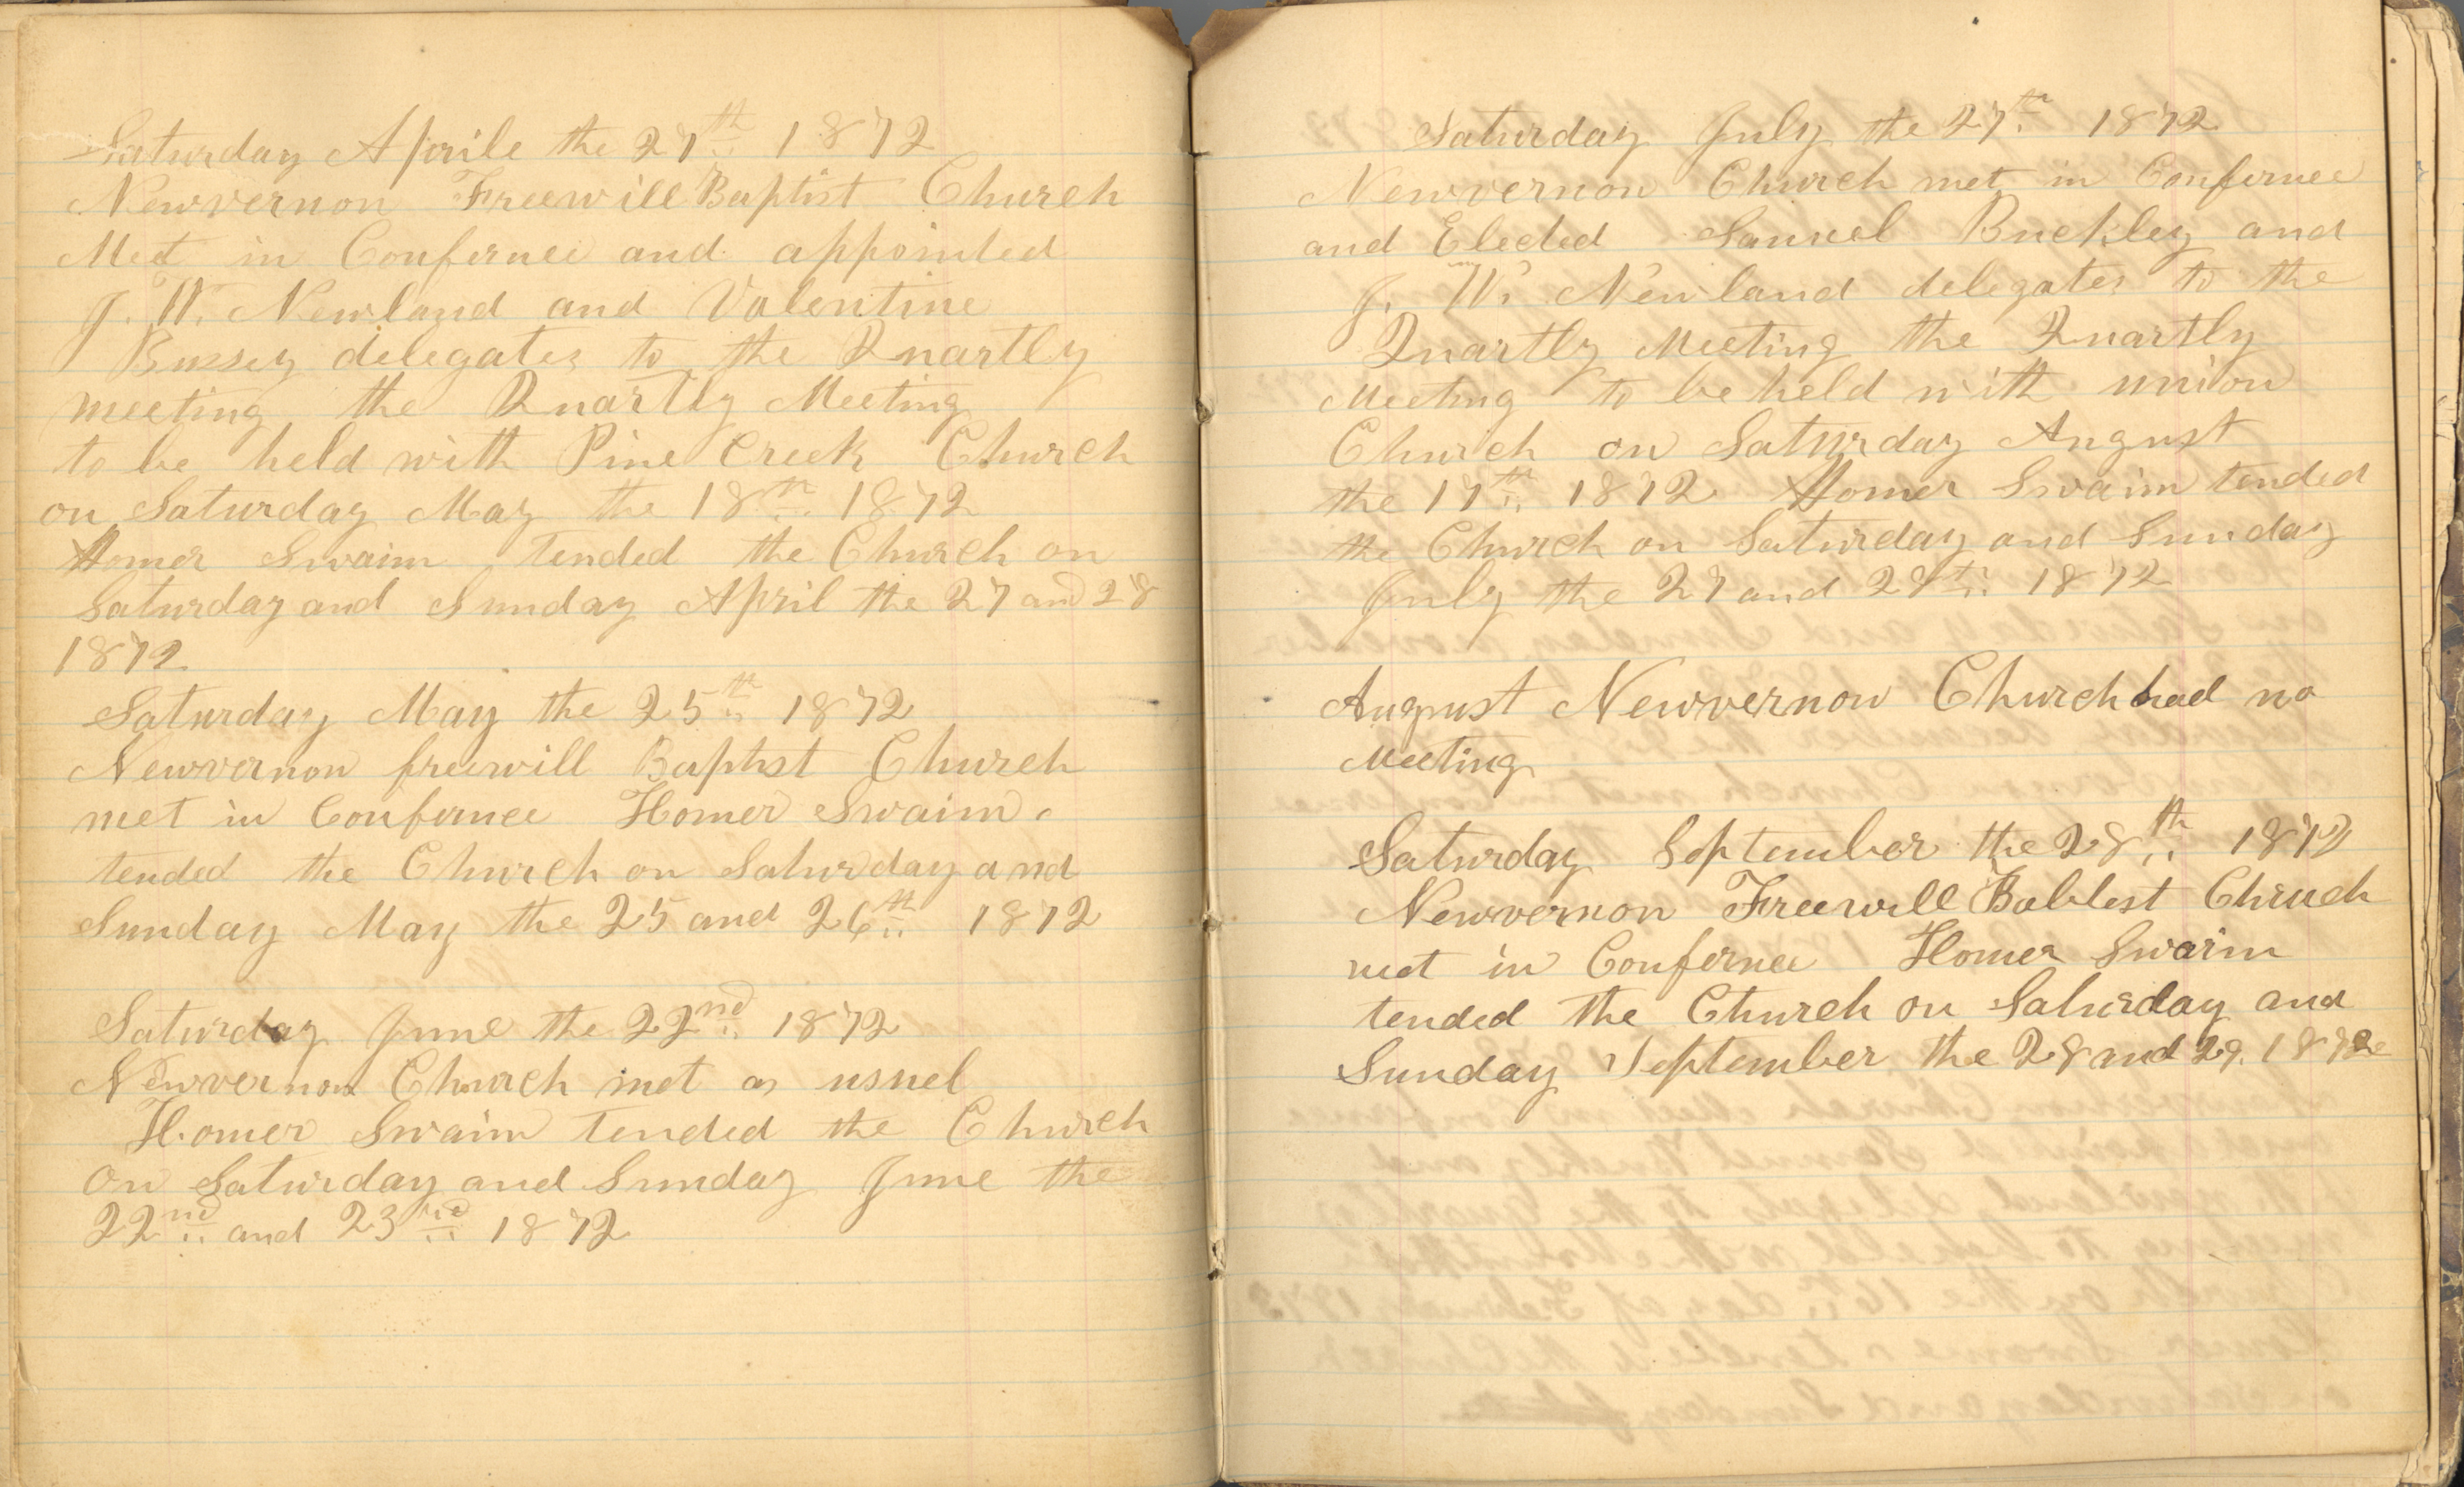 Saturday Aprile the 27th 1872
Newvernon Freewill Baptist Church
Met in Confernce and appointed
J. W. Newland and Valentine
Bussey delegates to the Quartly
meeting the Quartly Meeting
to be held with Pine Creek Church
on Saturday May the 18th 1872
Homer Swaim tended the Church on
Saturday and Sunday April the 27 and 28
1872
Saturday May the 25th 1872
Newvernon freewill Baptist Church
met in Confernce Homer Swaim
tended the Church on Saturday and
Sunday May the 25 and 26th 1872
Saturday June the 22nd 1872
Newvernon Church met as usuel
Homer Swaim tended the Church
on Saturday and Sunday June the
22nd and 23rd 1872
Saturday July the 27th 1872
Newvernon Church met in Confernce
and Elected Samuel Buckley and
J. W. Newland delegates to the
Quartly Meeting the Quartly
Meeting to be held with union
Church on Saturday August
the 17th 1872 Homer Swaim tended
the Church on Saturday and Sunday
July the 27 and 28th 1872
August Newvernon Church had no
Meeting
Saturday September the 28th 1872
Newvernon Freewill Babtest Chruch
met in Confernce Homer Swaim
tended the Church on Saturday and
Sunday September the 28 and 29. 1872